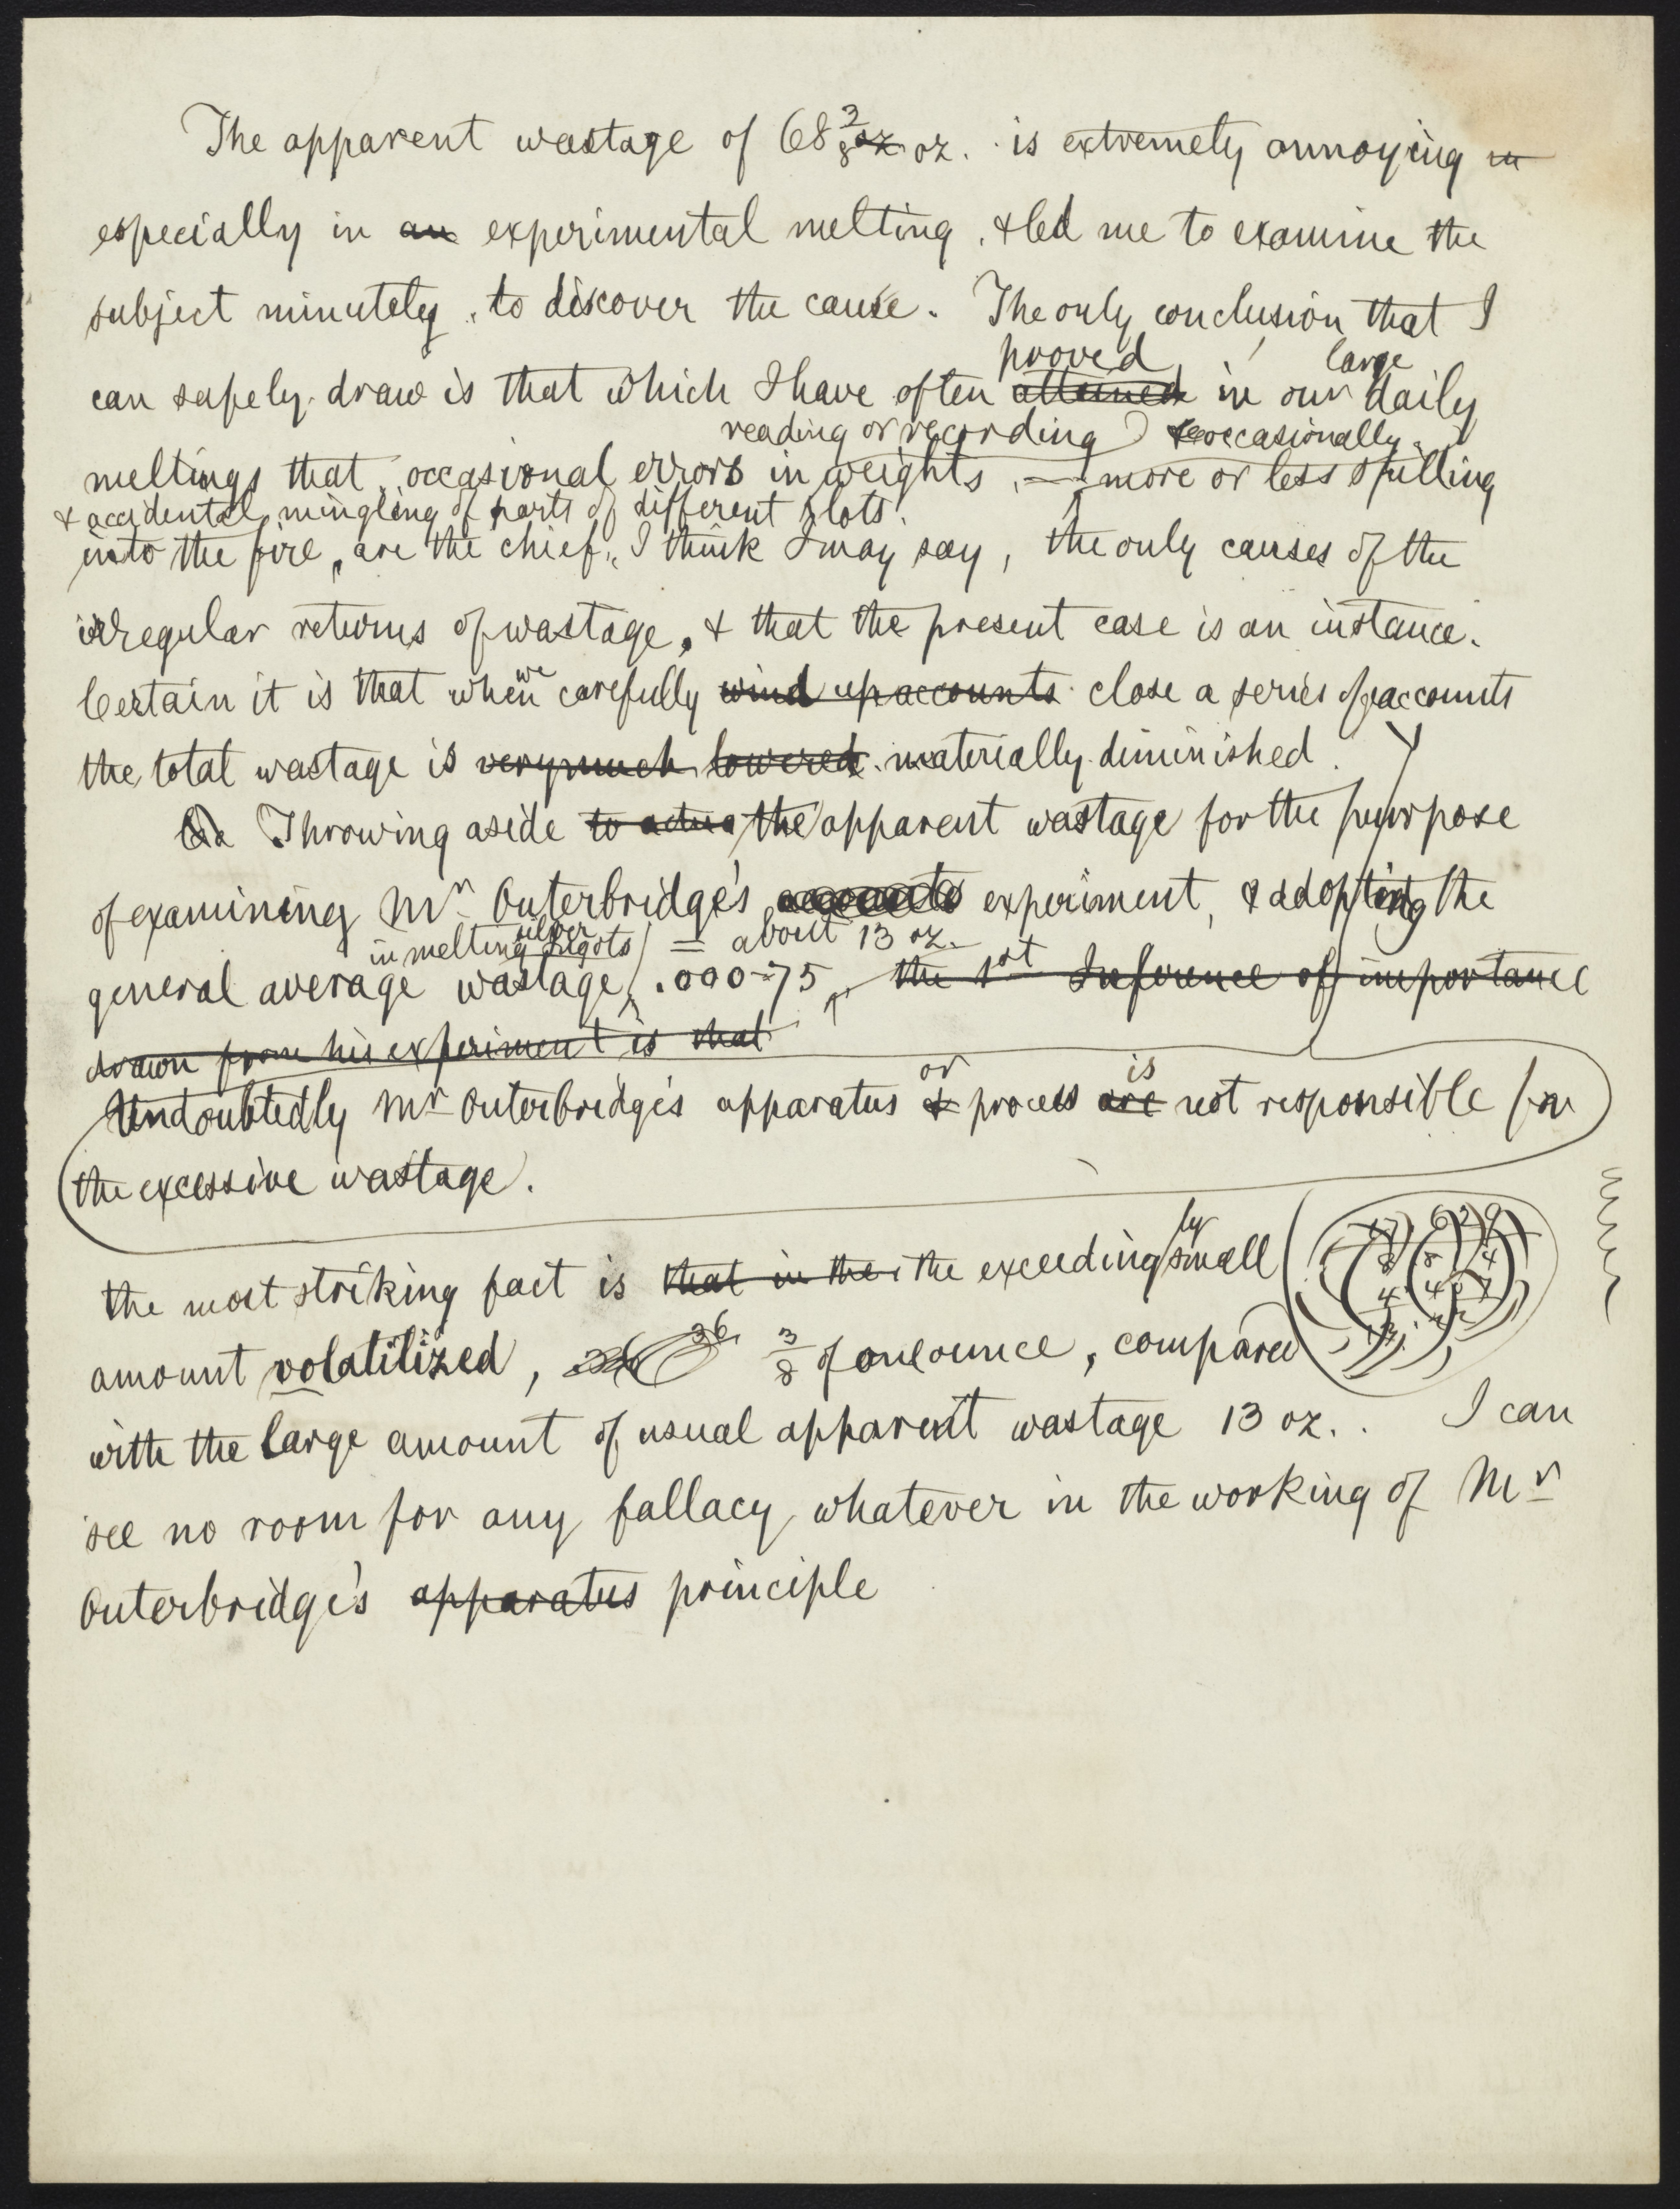 The apparent wastage of 68 3/8 oz. oz. is extremely annoying in
especially in an experimental melting, & led me to examine the
subject minutely, to discover the cause. The only conclusion that I
proved large
can safely draw is that which I have often attained in our daily
reading or recording occasionally
meltings that occasional errors in weights, — more or less spilling
& accidental mingling of parts of different lots.
into the fire, are the chief, I think I may say, the only causes of the
irregular returns of wastage, & that the present case is an instance.
we
Certain it is that when carefully wind up accounts close a series of accounts
the total wastage is very much lowered materially diminished.
Throwing aside the apparent wastage for the purpose
of examining Mr Outerbridge's accounts experiment, & adopting the
silver
in melting Ingots = about 13 oz.
general average wastage, .000-75, the 1st Inference of importance
drawn from his experiment is that
or is
Undoubtedly Mr Outerbridge's apparatus & process are not responsible for
the excessive wastage.
ly
the most striking fact is that in the the exceeding small
36
amount volatilized, 3/8 of one ounce, compared
with the large amount of usual apparent wastage 13 oz.. I can
see no room for any fallacy whatever in the working of Mr
Outerbridge's apparatus principle